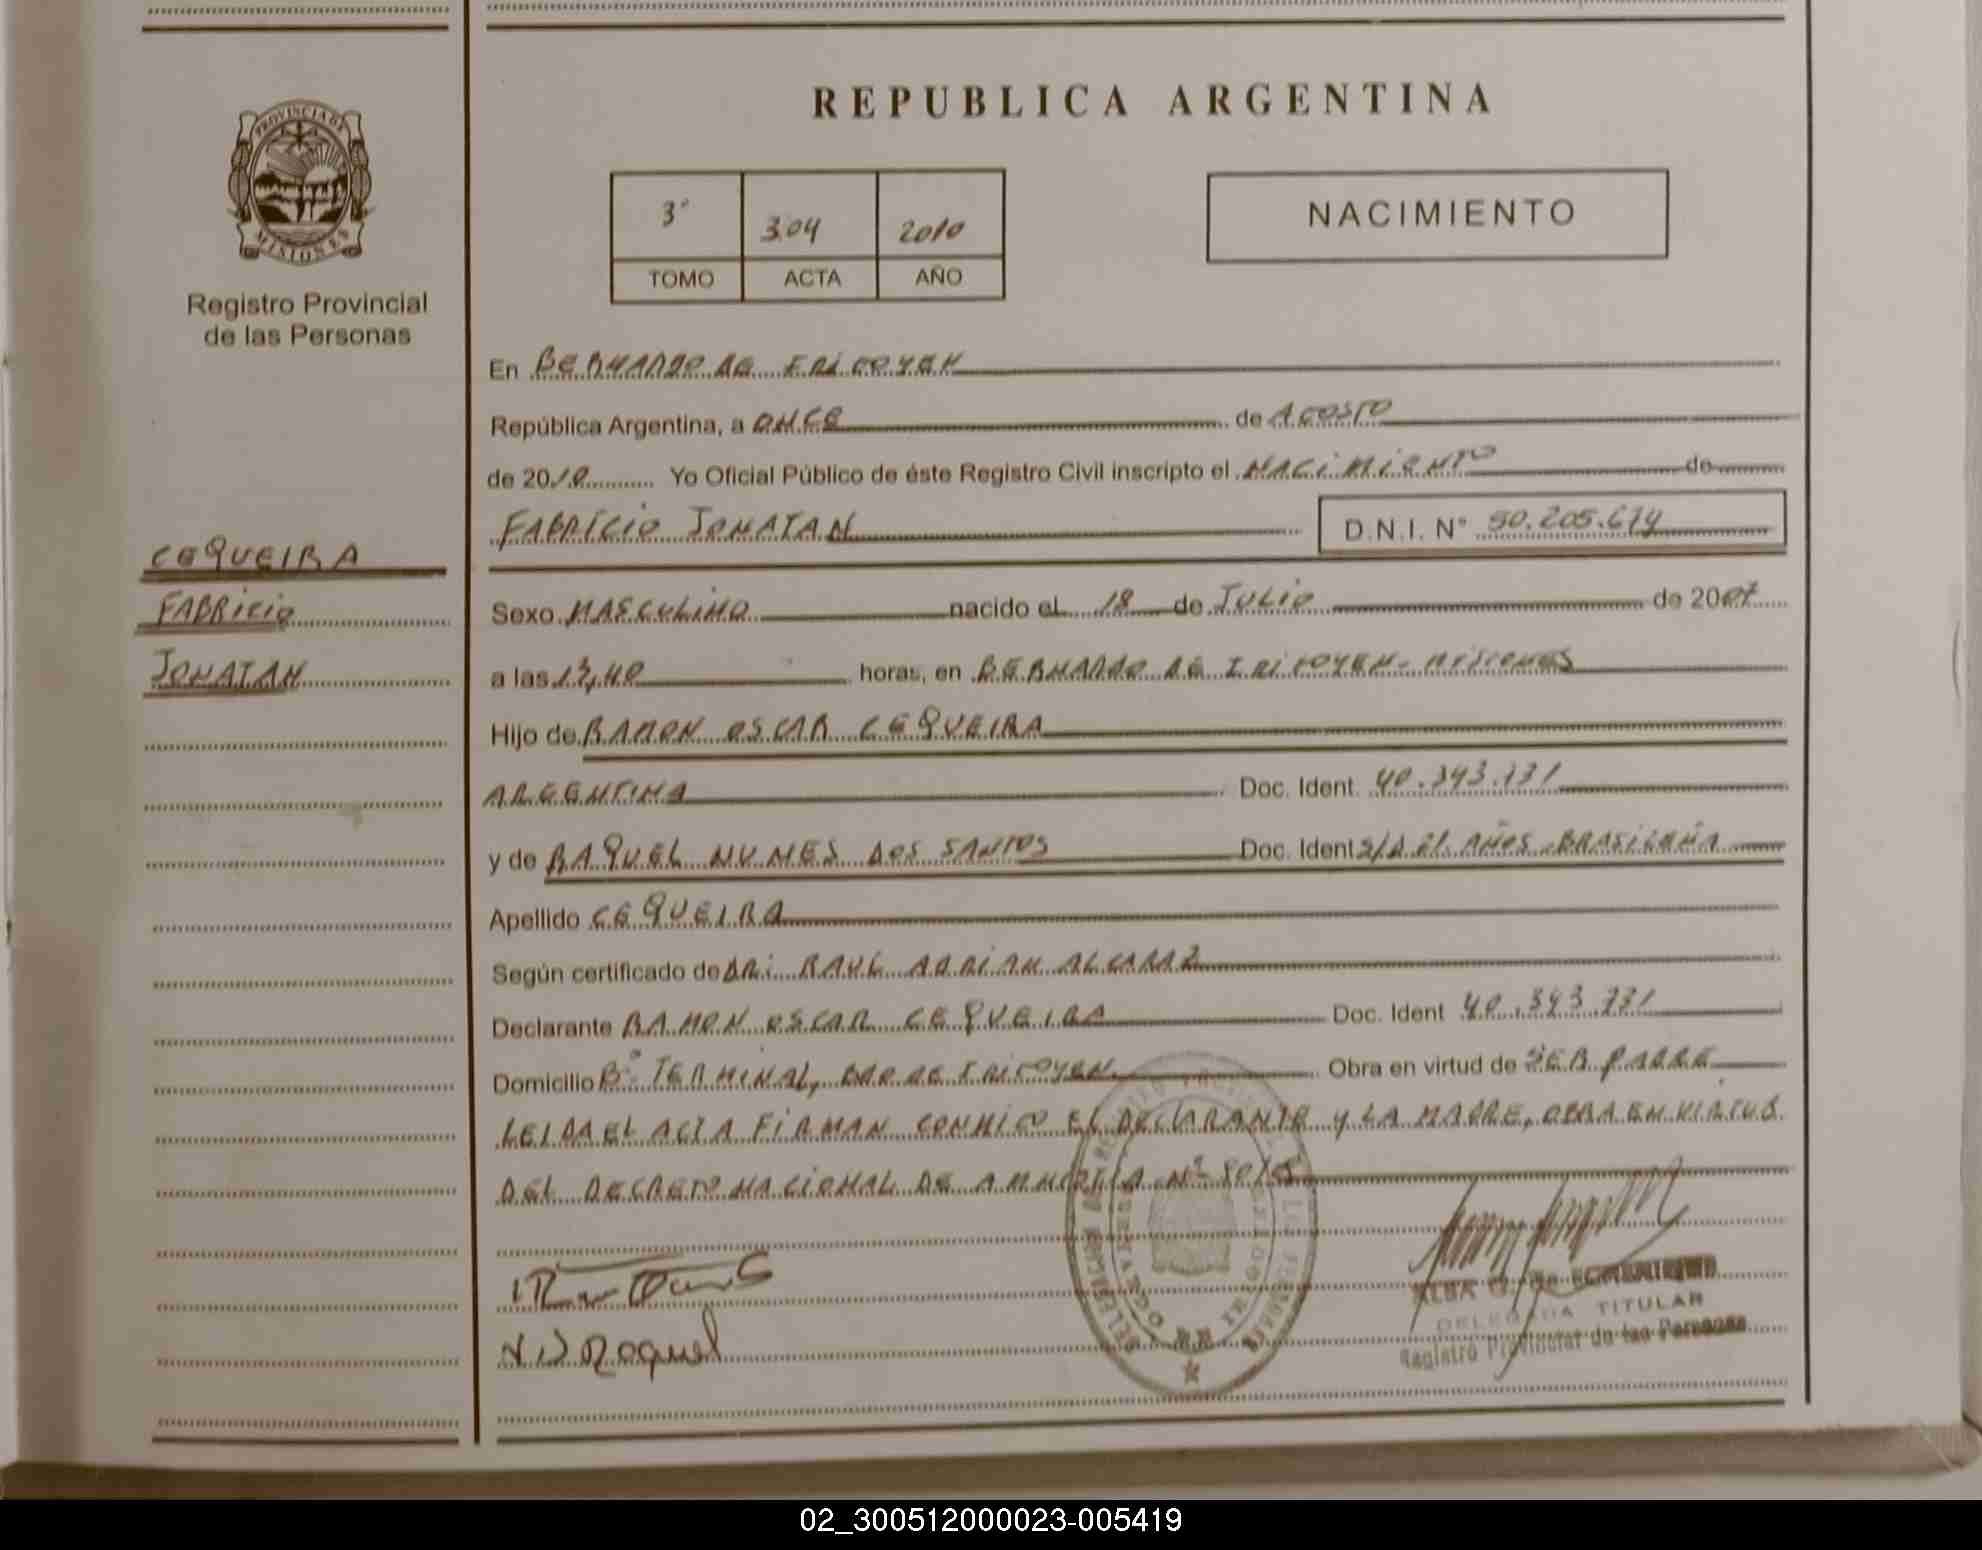 REPUBLICA ARGENTINA
PROVINCIA DE
MISIONES
Registro Provincial
de las Personas
3° 304 2010
TOMO ACTA AÑO
NACIMIENTO
En BERNARDO DE IRIGOYEN
República Argentina, a ONCE de AGOSTO
de 2010 Yo Oficial Público de éste Registro Civil inscripto el NACIMIENTO de
FABRICIO JONATAN D.N.I. N° 50.205.674
CEQUEIRA
FABRICIO
JONATAN
Sexo MASCULINO nacido el 18 de JULIO de 2007
a las 13,40 horas, en BERNARDO DE IRIGOYEN - MISIONES
Hijo de RAMON OSCAR CEQUEIRA
ARGENTINA Doc. Ident. 40.343.731
y de RAQUEL NUNES DOS SANTOS Doc. Ident S/D 21 AÑOS BRASILEÑA
Apellido CEQUEIRA
Según certificado de DR: RAUL ADRIAN ALCARAZ
Declarante RAMON OSCAR CEQUEIRA Doc. Ident 40.343.731
Domicilio B° TERMINAL, BDO DE IRIGOYEN Obra en virtud de SER PADRE
LEIDA EL ACTA FIRMAN CONMIGO EL DECLARANTE Y LA MADRE, OBRA EN VIRTUD
DEL DECRETO NACIONAL DE AMNISTIA N°
Raquel
DELEGADA TITULAR
Registro Provincial de las Personas
02_300512000023-005419